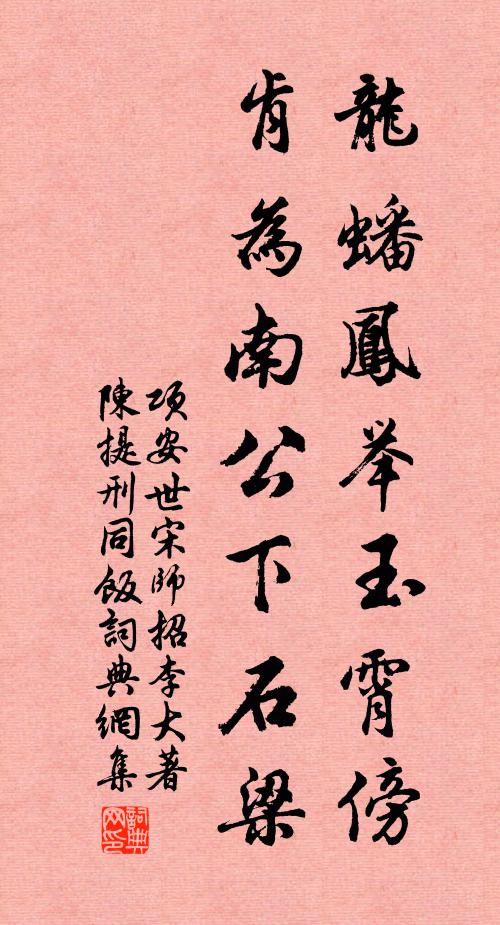 龍蟠鳳举玉霄傍
肯為南公下石梁
项安世宋師招李大著
陳提刑同飯詞典網集
詞典网印